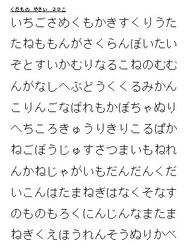 くだもの やさい さがし
いちごさめくもかきすくりうた
たねももんがさくらんぼいたい
ぞとすいかむりなるこねのむむ
んがなしへぶどうくくるみかん
こりんごなばれもかぼちゃぬり
へちころきゅうりきりこるぱか
ねごぼうじゅすさつまいもねれ
んかねじゃがいもだんだんくだ
いこんはたまねぎはなくそなす
のものもろくにんじんなまたま
ねぎくえほうれんそうぬりかべ